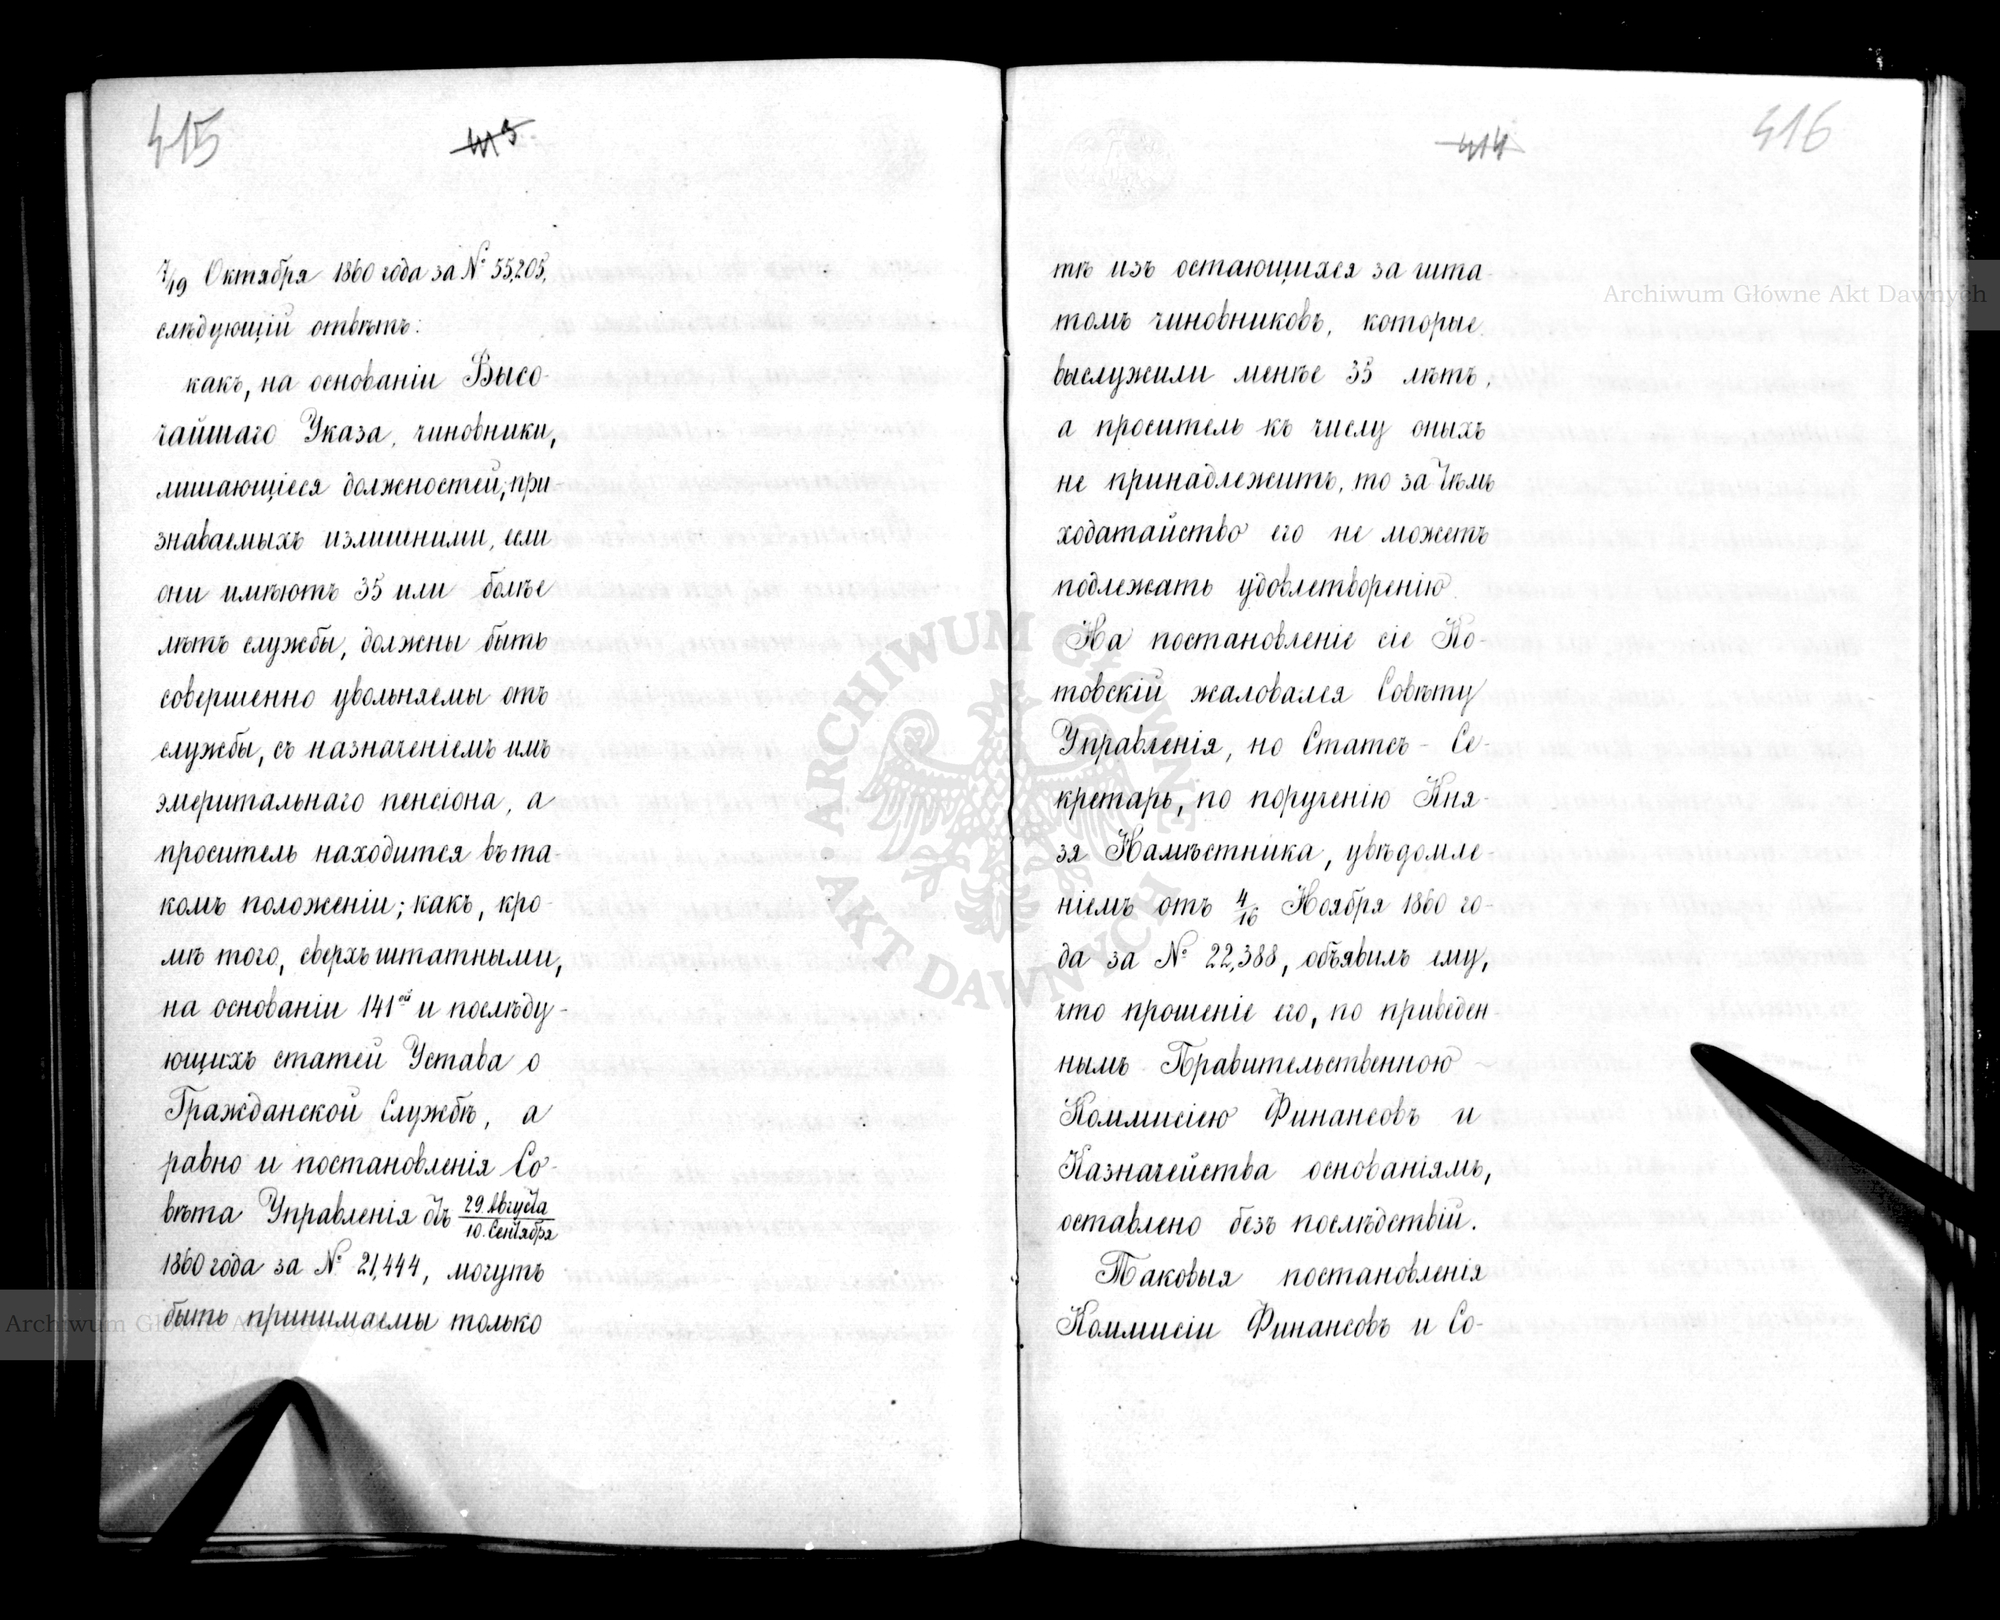 415
413
7/19 Октября 1860 года за № 55,205,
слѣдующій отвѣтъ:
какъ, на основаніи Высо-
чайшаго Указа, чиновники,
лишающіеся должностей, при
знаваемыхъ излишними, если
они имѣютъ 35 или болѣе
лѣтъ службы, должны быть
совершенно увольняемы отъ
службы, съ назначеніемъ имъ
эмеритальнаго пенсіона, а
проситель находится въ та
комъ положеніи; какъ, кро-
мѣ того, сверхъштатными,
на основаніи 141ой и послѣду-
ющихъ статей Устава о
Гражданской Службѣ, а
равно и постановленія Со-
вѣта Управленія отъ 29 Августа/10 Сентября
1860 года за № 21,444, могутъ
быть принимаемы только
414
416
тѣ изъ остающихся за шта-
томъ чиновниковъ, которые
выслужили менѣе 35 лѣтъ,
а проситель къ числу оныхъ
не принадлежитъ, то за тѣмъ
ходатайство его не можетъ
подлежать удовлетворенію.
На постановленіе сіе Ко-
товскій жаловался Совѣту
Управленія, но Статсъ-Се-
кретарь, по порученію Кня-
зя Намѣстника, увѣдомле-
ніемъ отъ 4/16 Ноября 1860 го-
да за № 22,388, объявилъ ему,
что прошеніе его, по приведен
нымъ Правительственною
Коммисіею Финансовъ и
Казначейства основаніямъ,
оставлено безъ послѣдствій.
Таковыя постановленія
Коммисіи Финансовъ и Со-
Archiwum Główne Akt Dawnych
ARCHIWUM GŁÓWNE AKT DAWNYCH
Archiwum Główne Akt Dawnych